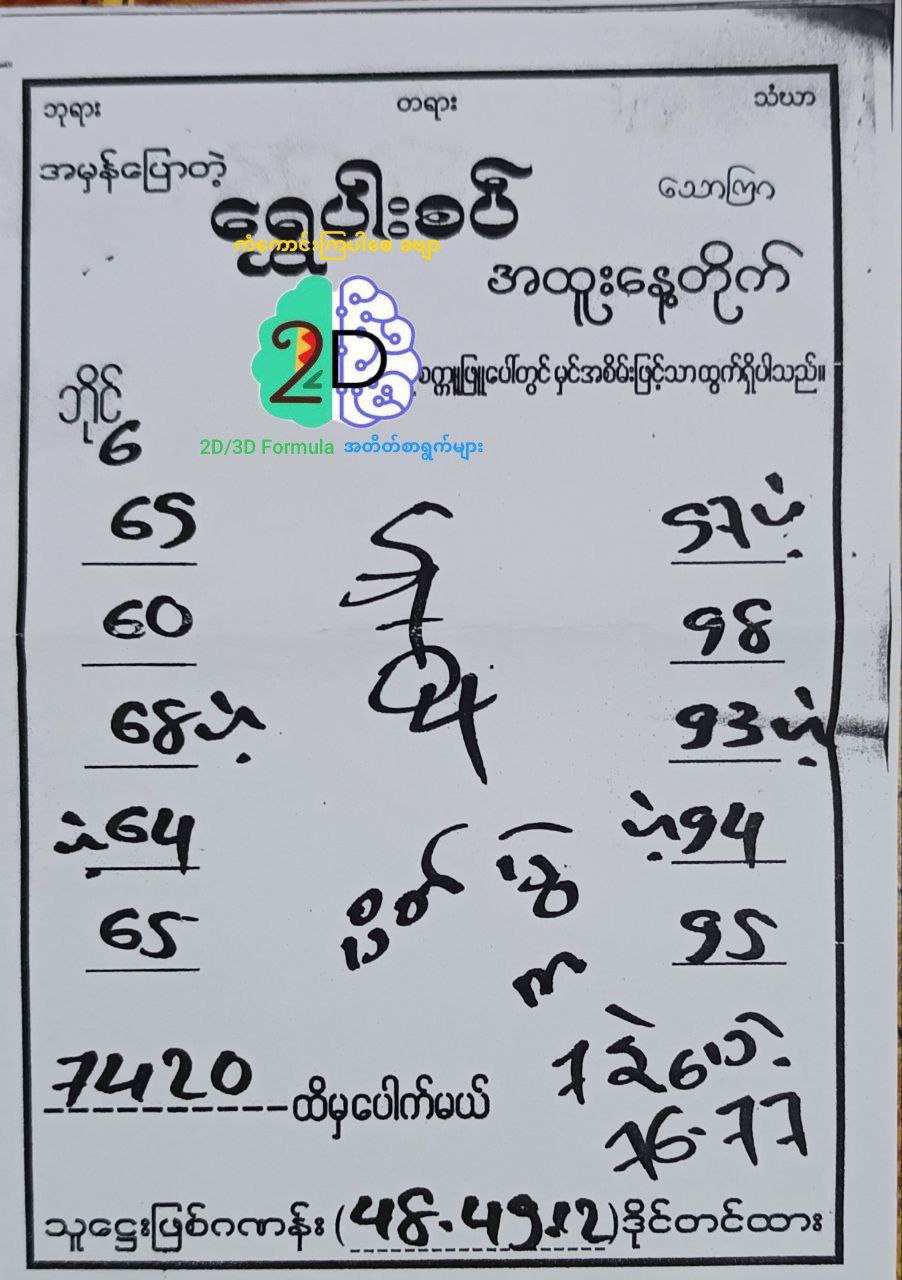 ဘုရား တရား သံဃာ
အမှန်ပြောတဲ့ သောကြာ
ရွှေပါးစပ်
ကံကောင်းကြပါစေ ခဗျာ
အထူးနေ့တိုက်
2D
စက္ကူဖြူပေါ်တွင် မှင်အစိမ်းဖြင့်သာထွက်ရှိပါသည်။
ဘိုင်
6
2D/3D Formula အတိတ်စာရွက်များ
65 57ဟဲ့
60 98
68ဟဲ့ 93ဟဲ့
ဟဲ့64 ဟဲ့94
65 95
7420 ထိမှပေါက်မယ်
76-77
သူဌေးဖြစ်ဂဏန်း (48.49.12) ဒိုင်တင်ထား